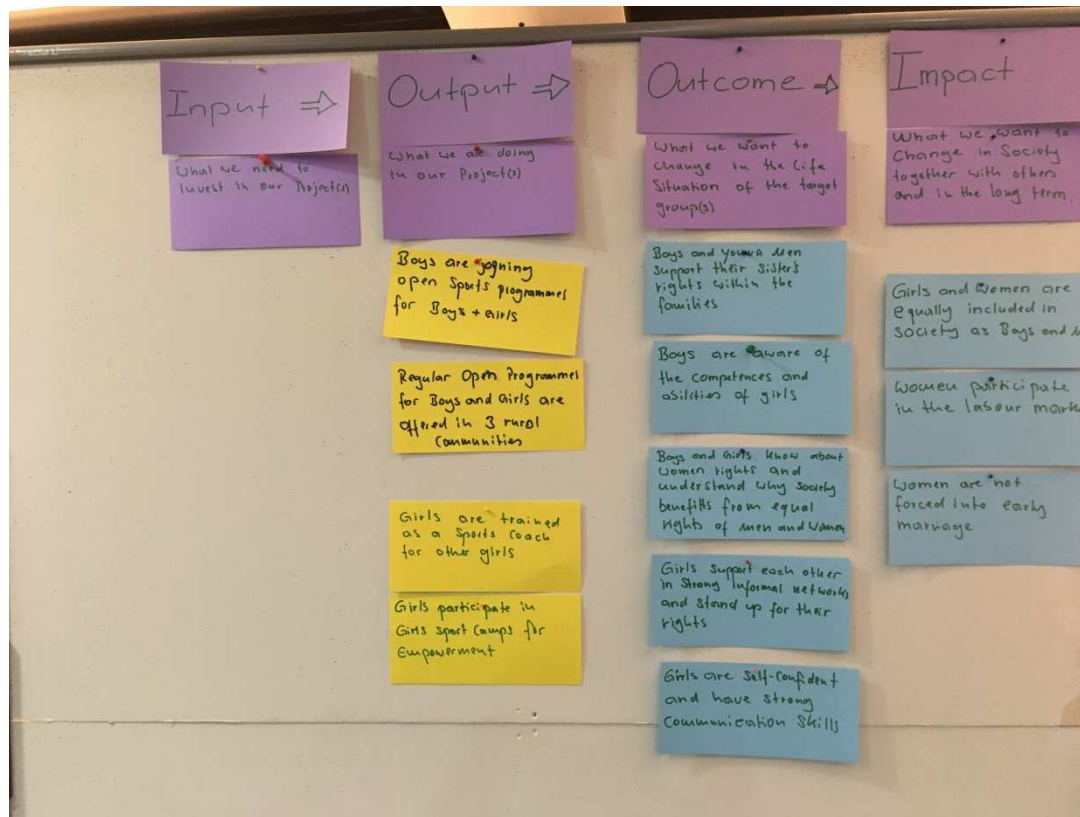 Input ⇒
What we need to
invest in our Project(s)
Output ⇒
What we are doing
in our Project(s)
Boys are joyning
open Sports programmes
for Boys + Girls
Regular Open Programmes
for Boys and Girls are
offered in 3 rural
Communities
Girls are trained
as a Sports Coach
for other girls
Girls participate in
Girls Sport Camps for
Empowerment
Outcome →
What we want to
Change in the Life
Situation of the target
group(s)
Boys and Young Men
support their Sister's
rights within the
families
Boys are aware of
the competences and
abilities of girls
Boys and Girls know about
women rights and
understand why Society
benefits from equal
rights of men and women
Girls support each other
in Strong informal networks
and stand up for their
rights
Girls are Self-Confident
and have strong
Communication Skills
Impact
What we want to
Change in Society
together with others
and in the long term.
Girls and Women are
equally included in
society as Boys and
Women participate
in the labour
Women are not
forced into early
marriage